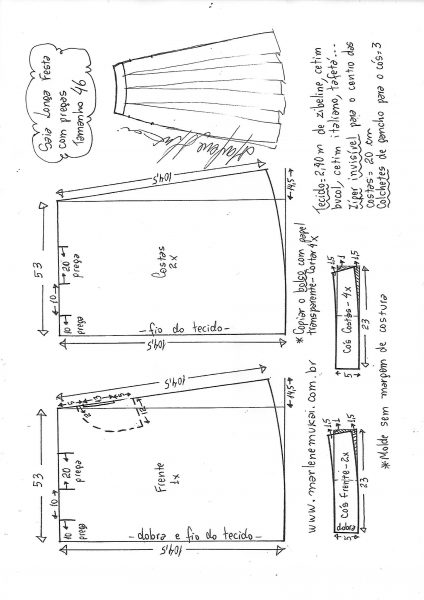 Saia Longa Festa
com pregas
Tamanho 46
Tecido=2,90 m de zibeline, cetim
bucol, cetim italiano, tafetá...
Zíper invisível para o centro das
costas= 20 cm
Colchetes de gancho para o cós=3
104,5
14,5
53
20
prega
10
10
prega
Costas
2x
-fio do tecido-
104,5
*Copiar o bolso com papel
transparente-Cortar 4x
1,5
1
1,5
Cós Costas-4x
23
5
104,5
14,5
53
5
15
5
2
12
20
prega
10
10
prega
Frente
1x
-dobra e fio do tecido-
104,5
www.marlenemukai.com.br
1,5
1
1,5
Cós frente-2x
dobra
23
5
*Molde sem margem de costura